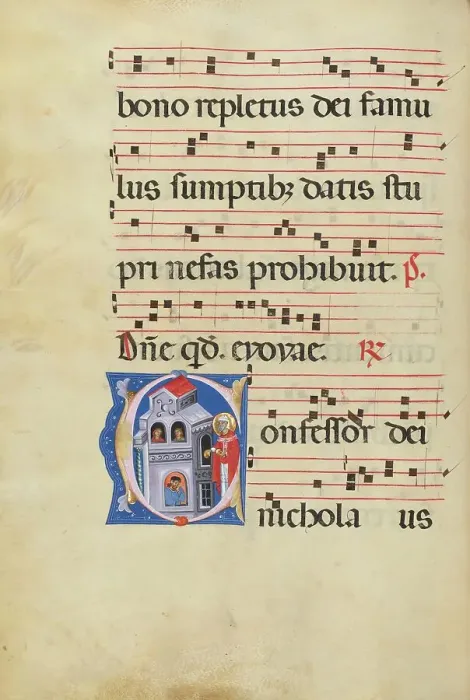 bono repletus dei famu
lus sumptibꝫ datis stu
pri nefas prohibuit. ps.
Dñe qđ. evovae. ℞
Confessor dei
nichola us